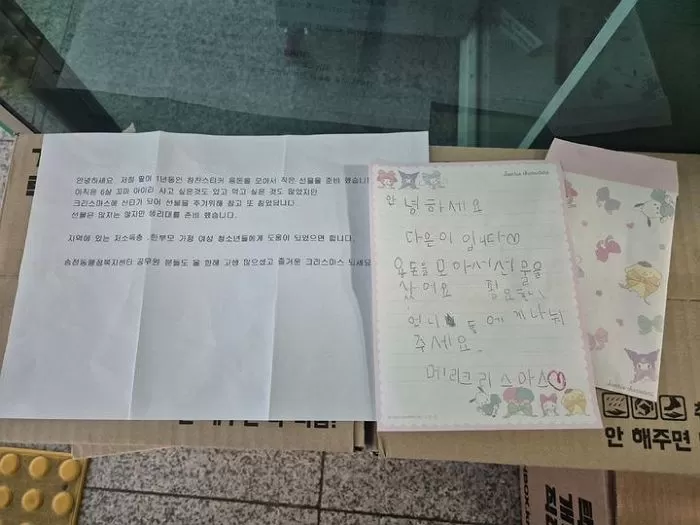 안녕하세요 저점 딸이 1년동안 칭찬스티커 용돈을 모아서 작은 선물을 준비 했습니
아직은 6살 꼬마 아이라 사고 싶은것도 있고 먹고 싶은 것도 많았지만
크리스마스에 산타가 되어 선물을 주기위해 참고 또 참았답니다
선물은 많지는 않지만 생리대를 준비 했습니다.
지역에 있는 저소득층 , 한부모 가정 여성 청소년들에게 도움이 되었으면 합니다.
송천동행정복지센터 공무원 분들도 올 한해 고생 많으셨고 즐거운 크리스마스 되세요
안녕하세요
다은이 입니다♡
용돈을 모아서 선물을
샀어요 필요한
언니들에게 나눠
주세요.
메리크리스마스♡
Sanrio characters
Sanrio characters
안 해주면